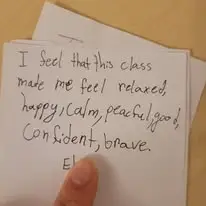 I feel that this class
made me feel relaxed,
happy, calm, peacful, good,
Confident, brave.